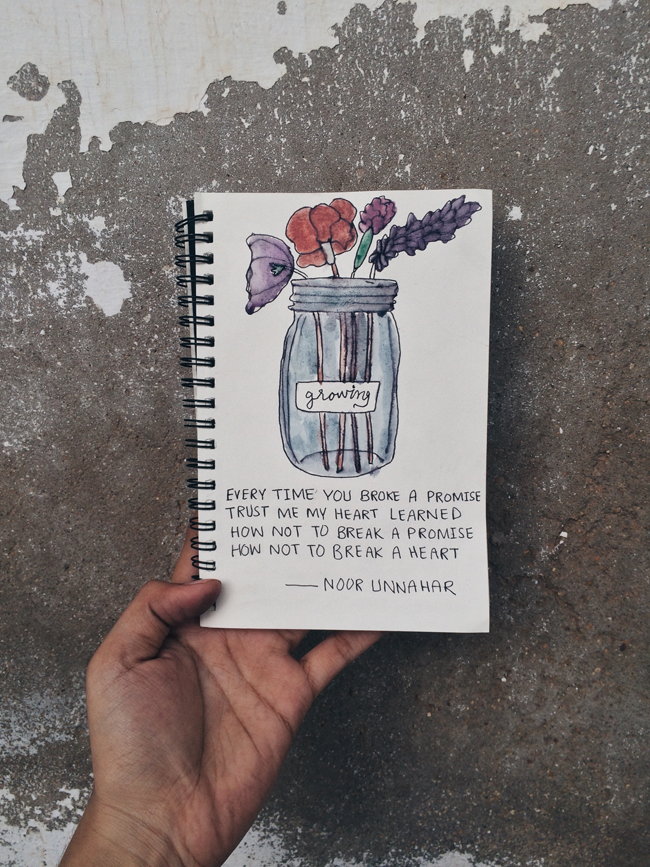 growing
EVERY TIME YOU BROKE A PROMISE
TRUST ME MY HEART LEARNED
HOW NOT TO BREAK A PROMISE
HOW NOT TO BREAK A HEART
—— NOOR UNNAHAR